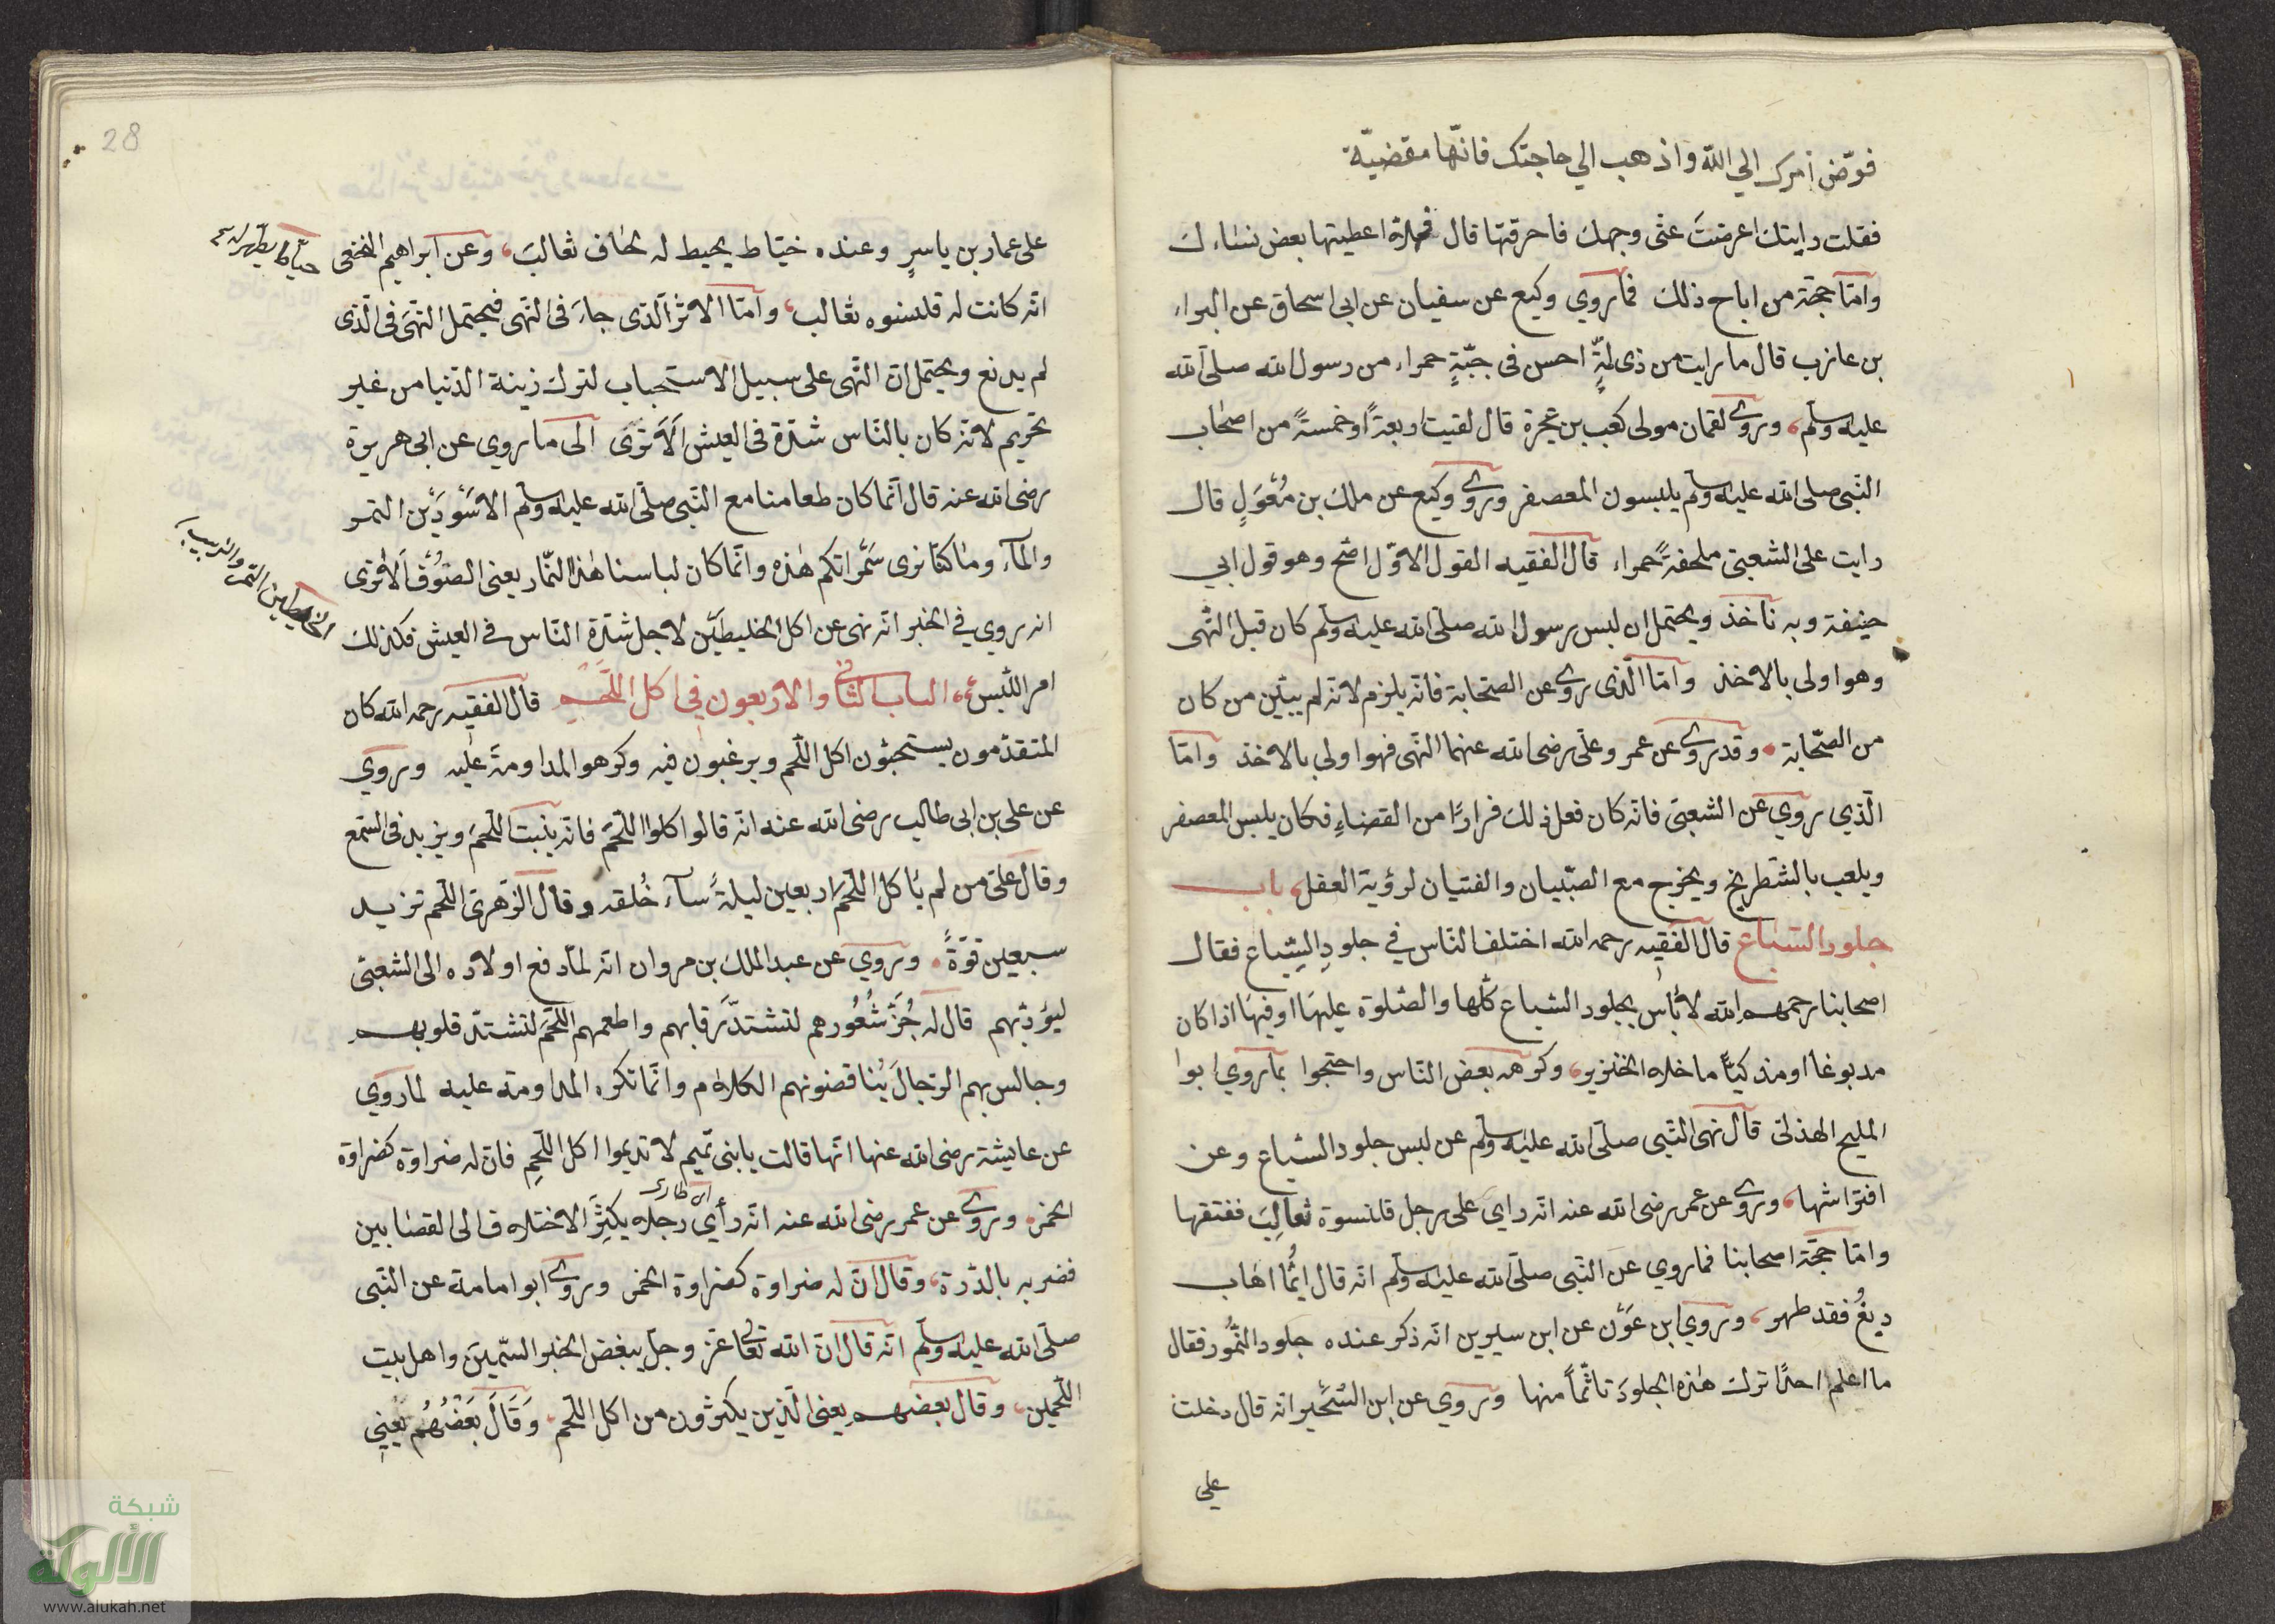 فوّض أمرك الي الله واذهب الي حاجتك فانّها مقضيّة
فقلت رايتك اعرضتَ عنّى وجهك فاحرقتها قال فهلاّ اعطيتها بعض نساءك
وامّا حجّة من اباح ذلك فماروي وكيع عن سفيان عن ابى اسحاق عن البراء
بن عازب قال ما رايت من ذى لمّةٍ احسن فى جبّةٍ حمراء من رسول الله صلى الله
عليه وسلم، وروى لقمان مولى كعب بن عجرة قال لقيت اربعةً او خمسةً من اصحاب
النّبى صلى الله عليه وسلم يلبسون المعصفر وروى وكيع عن ملك بن مُغْوَلٍ قال
رايت على الشعبىّ ملحفةً حمراء قال الفقيه القول الاوّل اصّح وهو قول ابي
حنيفة وبه نأخذ ويحتمل ان لبس رسول الله صلى الله عليه وسلم كان قبل النّهى
وهو اولى بالاخذ وامّا الّذى روى عن الصّحابة فانّه يلزم لانّه لم يبيّن من كان
من الصّحابة، وقد روى عن عمر وعلى رضى الله عنهما النّهى فهو اولى بالاخذ وامّا
الّذي روي عن الشعبىّ فانّه كان فعل ذلك فرارًا من القضاءِ فكان يلبس المعصفر
ويلعب بالشّطرنج ويخرج مع الصّبيان والفتيان لرؤية الفيل، باب
جلود السّباع قال الفقيه رحمه الله اختلف النّاس في جلودِ السِّباع فقال
اصحابنا رحمهم الله لا بأس بجلود السّباع كلّها والصّلوة عليها او فيها اذا كان
مدبوغا او مذكيًّا ما خلا الخنزير، وكرهه بعض النّاس واحتجوا بماروي ابوا
المليح الهذلى قال نهى النّبى صلّى الله عليه وسلم عن لبس جلود السّباع وعن
افتراشها، وروى عن عمر رضى الله عنه انّه راي على رجل قلنسوة ثعالِبَ ففتقها
وامّا حجّة اصحابنا فماروي عن النّبى صلّى الله عليه وسلم انّه قال ايُّما اهاب
دبغُ فقد طهر، وروي ابن عَوْن عن ابن سيرين انّه ذكر عنده جلود النُّمُور فقال
ما اعلم احدًا ترك هذه الجلودَ تأثّماً منها وروي عن ابن الشّخّير انّه قال دخلت
على
28
على عمار بن ياسرٍ وعنده خيّاط يخيط له لحاف ثعالبَ، وعن ابراهيم النخعى
انّه كانت له قلنسوه ثعالب، وامّا الاثر الّذى جاءَ فى النّهى فيحتمل النّهىَ فى الّذى
لم يدبغ ويحتمل انّ النّهى على سبيل الاستحباب لترك زينة الدّنيا من غير
تحريم لانّه كان بالنّاس شدّة فى العيش اَلاَ تَرَى الى ما روي عن ابى هريرة
رضى الله عنه قال انّما كان طعامنا مع النّبى صلّى الله عليه وسلم الاَسْوَدَيْن التمر
والمآء وما كنّا نرى سَمْراتكم هذه وانّما كان لباسنا هذا النّمار يعنى الصُوف اَلاَ تَرَى
انه روي في الخبر انّه نهى عن اكل الخليطَيْن لاجل شدّة النّاس فى العيش فكذلك
امر اللّبس، الباب الثّانى والاربعون في اكل اللّحْمِ قال الفقيه رحمه الله كان
المتقدّمون يستحبّون اكل اللّحم ويرغبون فيه وكرهوا المداومةَ عليه وروي
عن على بن ابى طالب رضى الله عنه انّه قال كلوا اللّحمَ فانّه ينبت اللّحمَ ويزيد فى السّمع
وقال علىّ من لم يأكل اللّحمَ اربعين ليلةً سآءَ خُلقه وقال الزّهرىّ اللّحم تزيد
سبعين قوّةً، وروي عن عبد الملك بن مروان انّه لمّا دفع اولاده الى الشعبىّ
ليؤدّبهم قال له جُزَّ شُعُورهم لتشتدّ رقابهم واطعمهم اللّحمَ لتشتدّ قلوبهم
وجالس بهم الرّجالَ يُناقضونهم الكلام وانّما تكره المداومة عليه لماروي
عن عايشة رضى الله عنها انّها قالت يا بنى تميم لا تديموا اكل اللّحمِ فانّ له ضراوة كضراوة
الخمر، وروى عن عمر رضى الله عنه انّه رأى رجلا يكثِرُ الاختلاف الى القصّابين
فضربه بالدّرة، وقال انّ له ضراوة كضراوة الخمر وروى ابو امامة عن النّبى
صلّى الله عليه وسلم انّه قال انّ الله تعالى عزّ وجلّ يبغض الخبر السّمينَ واهل بيت
اللّحمين، وقال بعضهم يعنى الّذين يكثرون من اكل اللّحم، وَقَالَ بَعْضُهُم يَعْنِي
الخليطين التمر والزبيب
شبكة
الألوكة
www.alukah.net